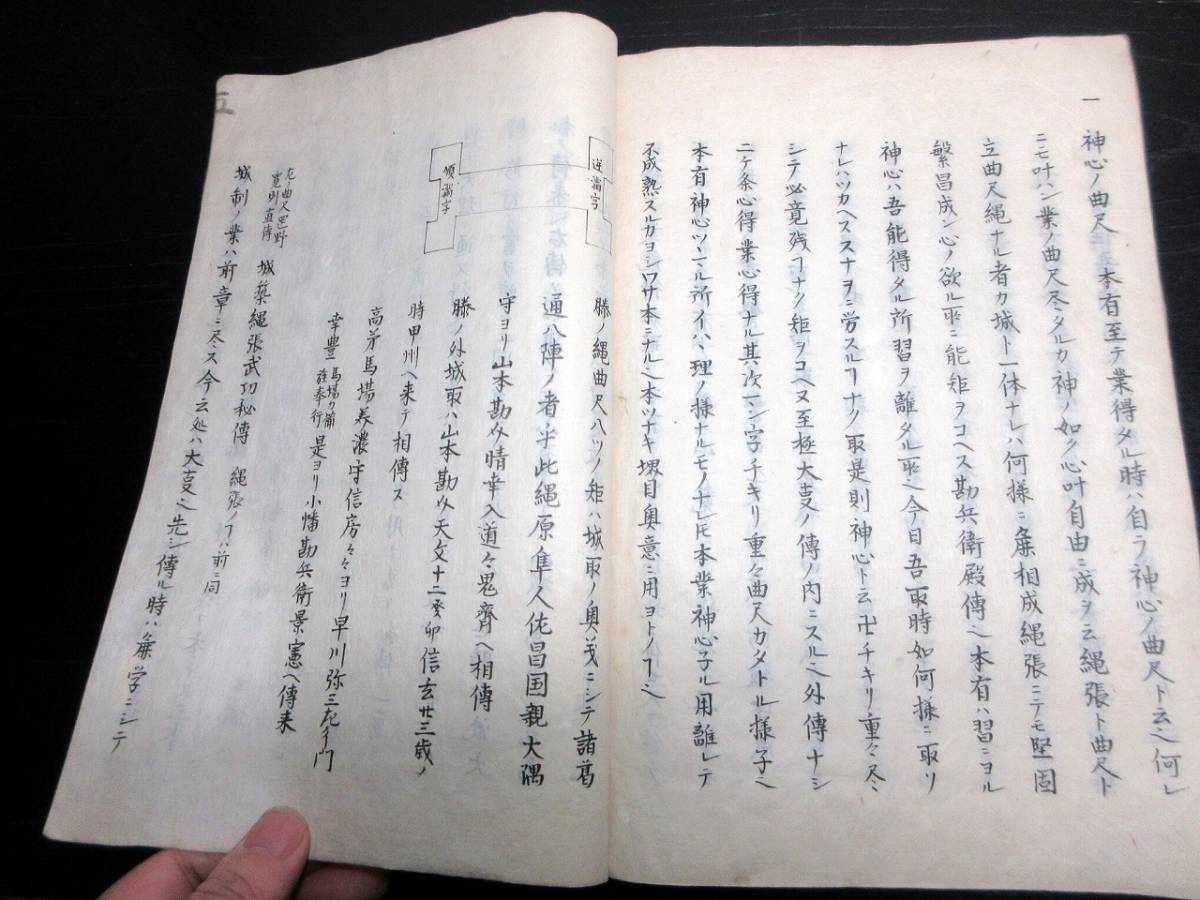 一 神心ノ曲尺 本有至テ業得タル時ハ自ラ神心ノ曲尺ト云ヘ何レ
ニモ叶ハン業ノ曲尺尽タルカ神ノ如ク心叶自由ニ成ヲ云縄張ト曲尺ト
立曲尺縄ナル者カ城ト一体ナレハ何様ニ 相成縄張ニテモ堅固
繁昌成シ心ノ欲ル所ニ能矩ヲコヘス勘兵衛殿傳ヘ本有ハ習ニヨル
神心ハ吾能得タル所習ヲ離タル所ヘ今日吾取時如何様ニ取リ
ナレハツカヘススナヲニ労スルヿナノ取是則神心ト云卍チキリ重々尽ミ
シテ必竟残ヿナク矩ヲコヘヌ至極大叓ノ傳ノ内ニスルヘ外傳ナシ
ニケ条心得業心得ナル其次 字チキリ重々曲尺カタトル様子ヘ
本有神心ツ ル所イハヽ理ノ様ナルモノナレ𪜈本業神心子ル用離レテ
不成熟スルカヨシワサ本ニナルヘ本ツナキ 目奥意ニ用ヨトノヿヘ
逆満字
順満字
勝ノ縄曲尺八ツノ矩ハ城取ノ奥 ニシテ諸葛
通八陣ノ者 此縄原隼人佐昌国親大隅
守ヨリ山本勘 晴幸入道々鬼齊ヘ相傳
勝ノ外城取ハ山本勘 天文十二癸卯信玄廿三歳ノ
時甲州ヘ来テ相傳ス
高 馬場美濃守信房々々ヨリ早川弥三左エ門
幸豊 馬場 奉行 是ヨリ小幡勘兵衛景憲ヘ傳来
左ノ曲尺 野
寛則直傳 城築縄張武功秘傳 縄張ノヿハ前ニ同
城制ノ業ハ前章ニ尽ス今云処ハ大叓之先ジ傳ル時ハ 学ニシテ
五